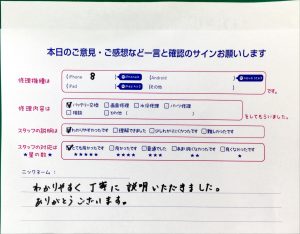 本日のご意見・ご感想など一言と確認のサインお願いします
修理機種は
iPhone 8
Android
iPad
その他
です。
修理内容は
バッテリー交換 画面修理 水没修理 パーツ修理
相談 その他
をしてもらいました。
スタッフの説明は わかりやすかったです 理解できました 少しわかりにくかったです 難しかったです
スタッフの対応は とても良かったです 良かったです 普通でした あまり良くなかったです 良くなかったです
★星の数★ ★★★★★ ★★★★ ★★★ ★★ ★
ニックネーム：
わかりやすく丁寧に説明いただきました。
ありがとうございます。